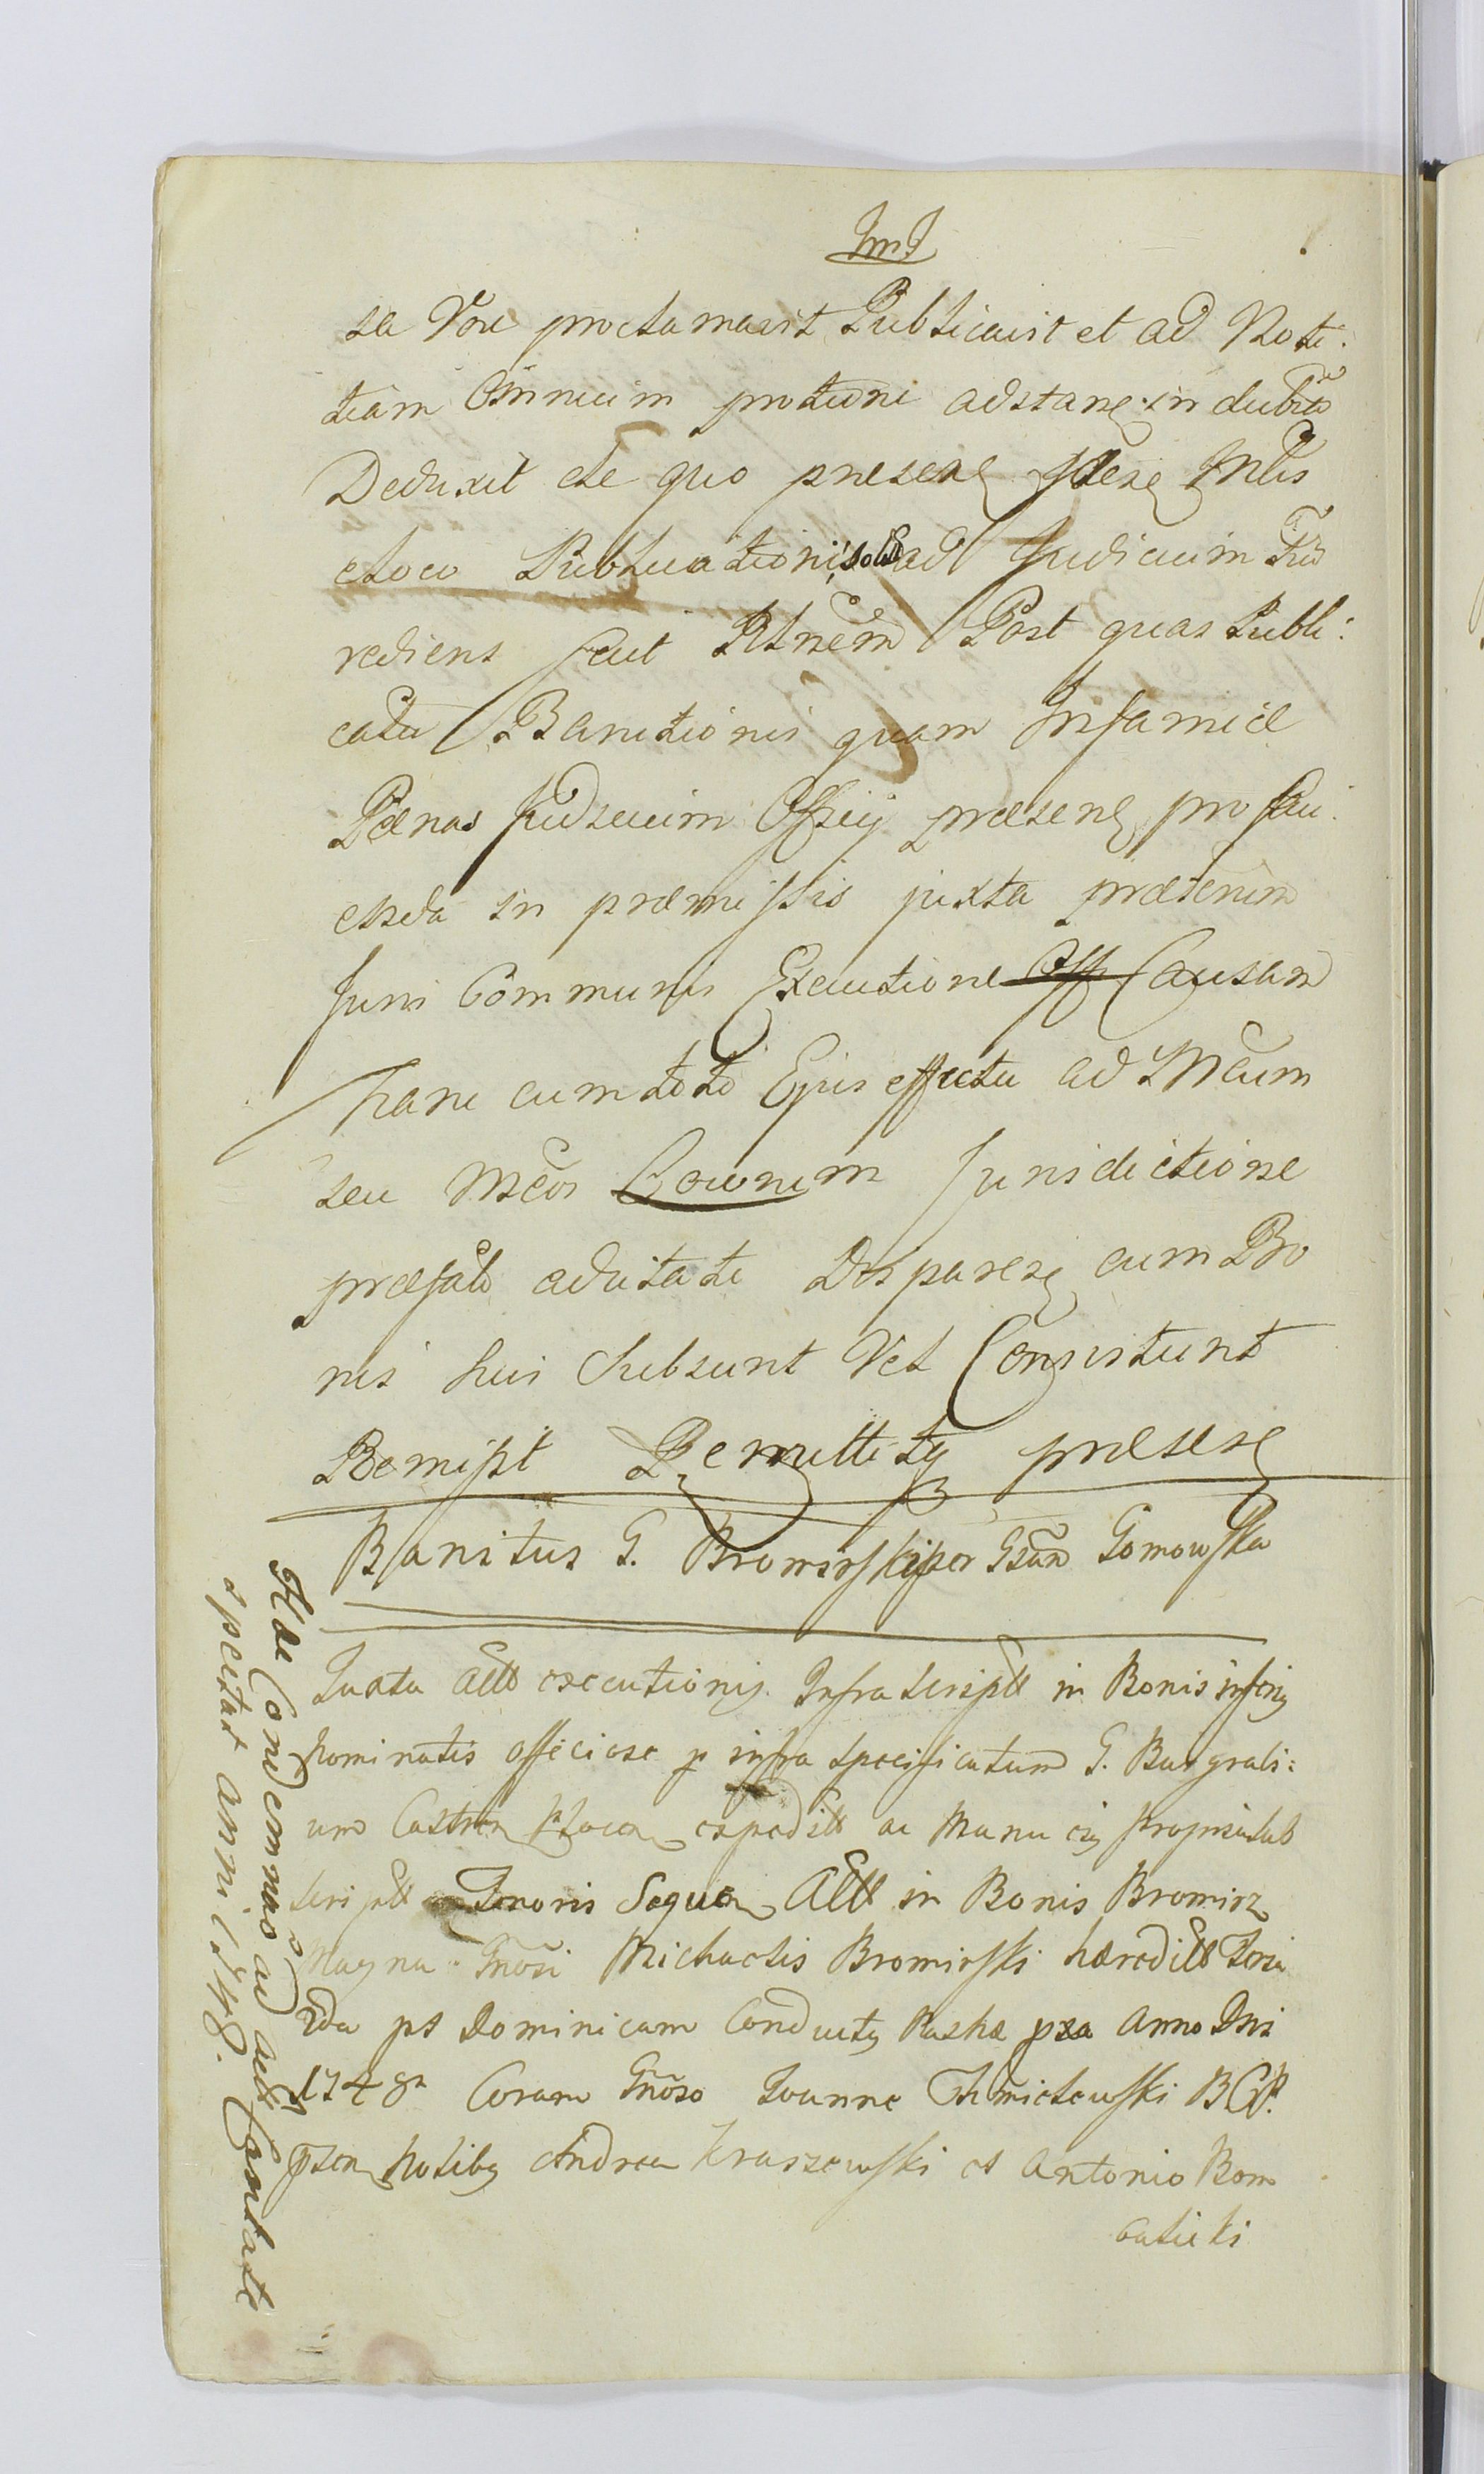 JmJ
sa Voce proclamavit Publicavit et ad Noti:
tiam Omnium protunc adstan. indubita
Deduxit de quo presens idem Mtlis
eLoco Publicationis ad Judicium
rediens fecit Rlnem Post quas Publi:
catas Banitionis quam Infamiæ
Pænas Judicium Officij præsens pro
in præmissis juxta præscrium
Juris Communis Executione Off Causam
hanc cum toto Ejus effectu ad Mcum
seu Mcos Quorum Jurisdictione
præfati adcitati cum Bo
nis suis Subsunt Vel Consistunt
Remisit Remittitq præsen
Banitus G. Bromirski per Gsam Gomowska
Juxta Actt executionis Infrascriptt in Bonis inferiq
nominatis officiose p infra specificatum G. Burgrabi:
um Castren Plocen expeditt ac Manu eiq propria sub
scriptt Tenoris Sequen Actt in Bonis Bromirz
Magna Gnosi Michaelis Bromirski hæreditt Feria
2da pst Dominicam Conductq Paschæ pxa Anno Dni
1748 Coram Gnoso Joanne Chmielewski BCP.
psen Nolibq Andrea Kraszewski et Antonio Bom
balicki
Hæc Condemnao ad actt Cantate
spectat anni 1748.